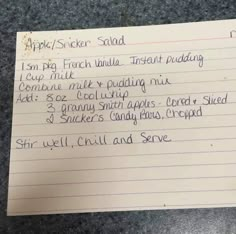 Apple/Snicker Salad
1 sm pkg French Vanilla Instant pudding
1 Cup milk
Combine milk & pudding mix
Add: 8 oz Cool whip
3 granny Smith apples - Cored & Sliced
2 Snicker's Candy Bars, Chopped
Stir well, Chill and Serve